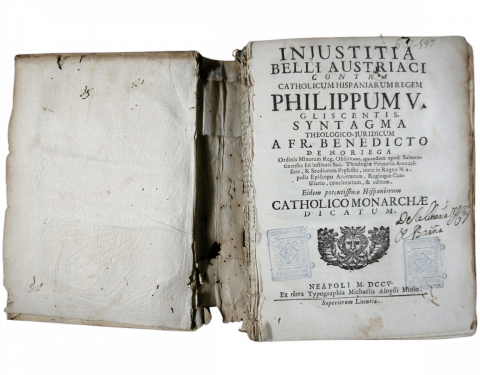 INJUSTITIA
BELLI AUSTRIACI
CONTRA
CATHOLICUM HISPANIARUM REGEM
PHILIPPUM V.
GLISCENTIS.
SYNTAGMA
THEOLOGICO-JURIDICUM
A FR. BENEDICTO
DE NORIEGA
Ordinis Minorum Reg. Observant. quondam apud
Theologiæ Primario
& Studiorum Præfecto, nunc in Regno Nea-
polis Episcopo Acerrarum, Regioque Con-
siliario, concinnatum, & editum.
Eidem potentissimo Hispaniarum
CATHOLICO MONARCHÆ
DICATUM.
NEAPOLI M. DCCV.
Ex nova Typographia Michaelis Aloysii Mutio.
Superiorum Licentia.